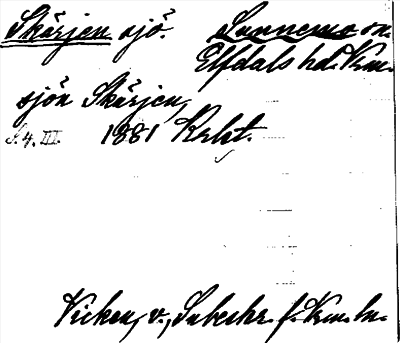 Skärjen sjö. Sunnemo sn.
Elfdals hd. Vrm.
sjön Skärjen,
S. 4. III. 1881 Krlst.
Vicken, v., Inberhr. f. Vrm. ln.